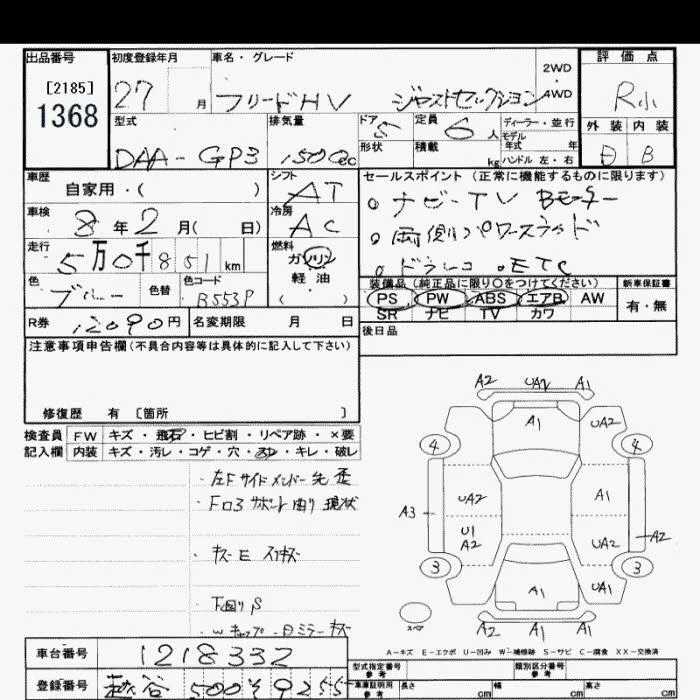 出品番号 初度登録年月 車名・グレード 評価点
[2185]
1368
27 月 フリードHV ジャストセレクション 2WD 4WD R小
型式 排気量 ドア 定員 ディーラー・並行 外装 内装
DAA-GP3 1500cc 5 6人 モデル年式 年
形状 積載 kg ハンドル 左・右 B
車歴 シフト セールスポイント(正常に機能するものに限ります)
自家用・( ) AT ナビ-TV Bモーター
車検 冷房 両側パワースライド
8年2月( 日) AC
走行 燃料 ドラレコ ETC
5万0千851km ガソリン
軽油
( )
色 色替 色コード 装備品(純正品に限り○をつけてください) 新車保証書
ブルー B553P PS PW ABS エアB AW 有・無
SR ナビ TV カワ
R券 12090円 名変期限 月 日 後日品
注意事項申告欄(不具合内容等は具体的に記入して下さい)
修復歴 有 〔箇所 〕
検査員 FW キズ・飛石・ヒビ割・リペア跡・×要
記入欄 内装 キズ・汚レ・コゲ・穴・・キレ・破レ
・左Fサイドメンバー先
・ サポート曲り 現状
・キズ E スリキズ
・下回りS
・Wキャップ・ミラーキズ
A2 UA2 A1
A1 UA2
4 4
A3 UA2 A1
U1
A2 UA2 A2
3 3
A1 UA1
スペア A2 A1 A1
A-キズ E-エクボ U-凹み W-補修跡 S-サビ C-腐食 XX-交換済
車台番号 1218332
登録番号 越谷 500 9255
型式指定番号 参考 類別区分番号 参考
車庫証明用 参考 長さ cm 幅 cm 高さ cm